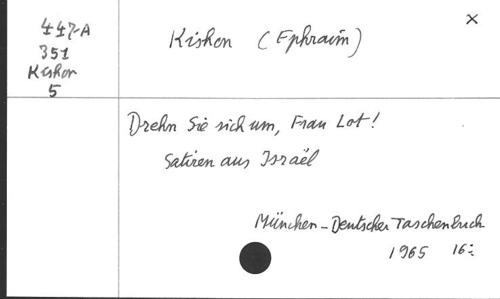 447-A
351
Kishon
5
Kishon (Ephraïm)
x
Drehn Sie sich um, Frau Lot!
Satiren aus Israël
München - Deutscher Taschenbuch
1965 16: